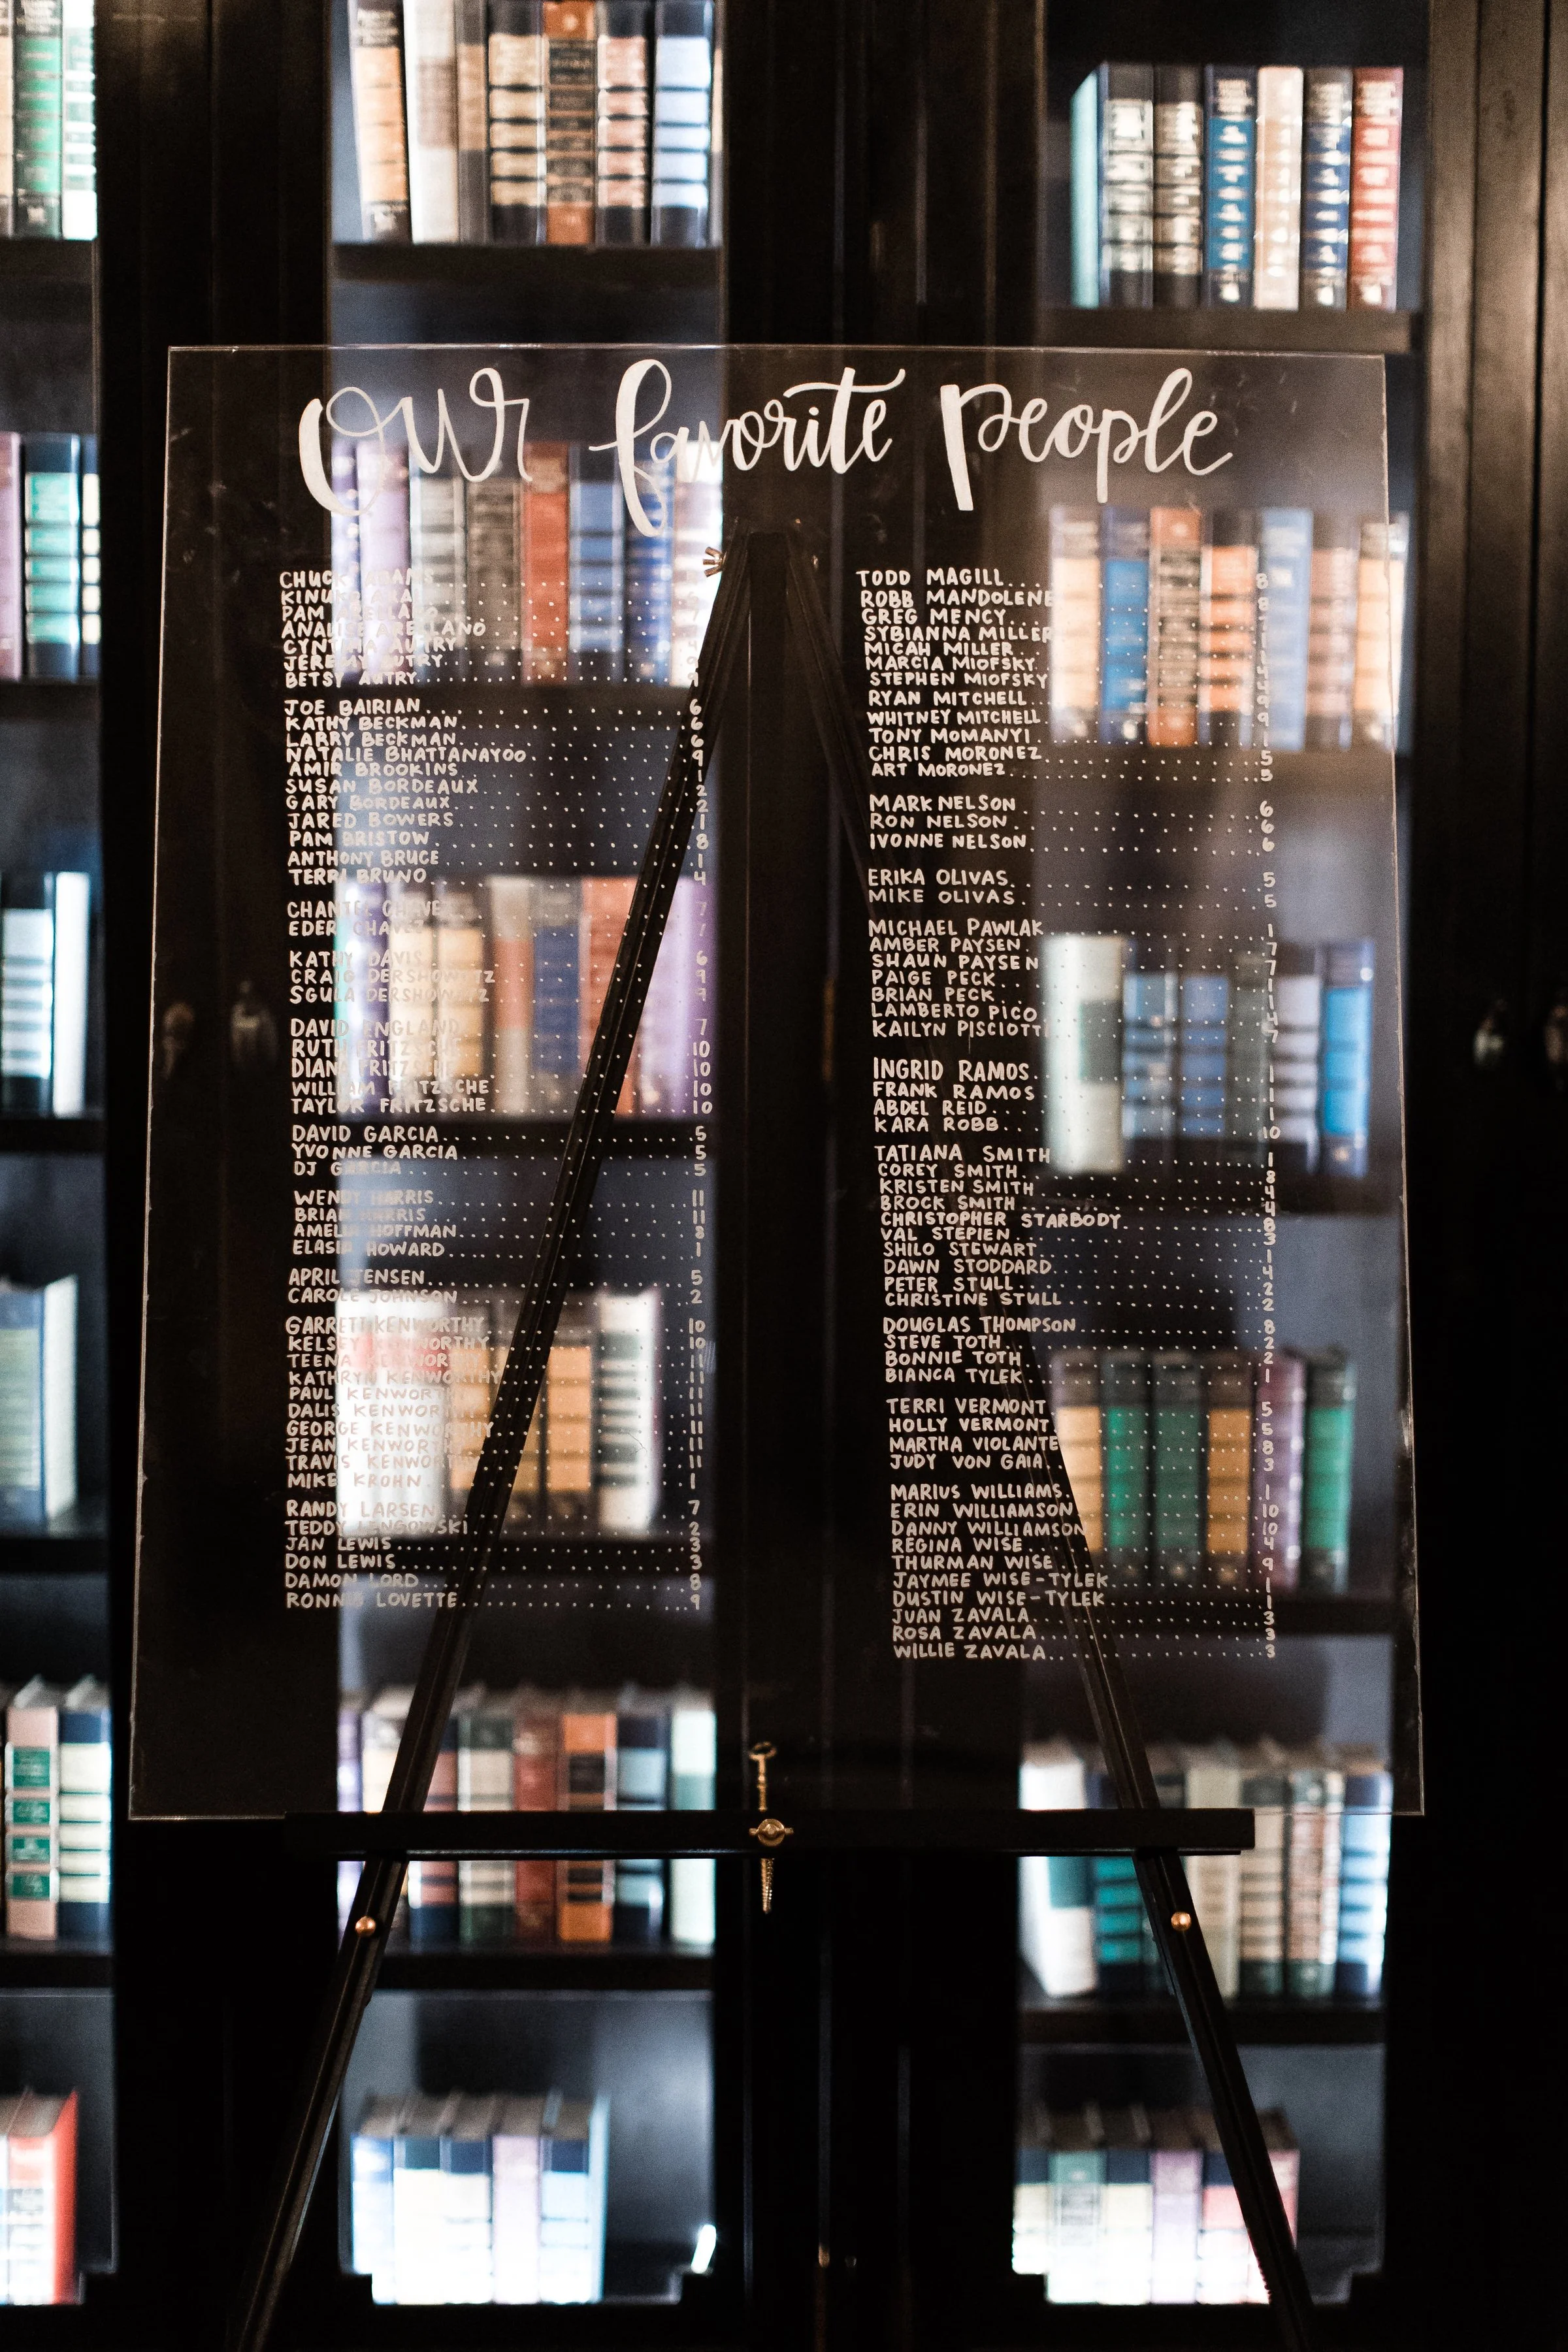 Our favorite people
CHUCK ADAMS
PAM
ANALISE ARELLANO
CYNTHIA AUTRY
JEREMY AUTRY 9
BETSY AUTRY 9
JOE BAIRIAN 6
KATHY BECKMAN 6
LARRY BECKMAN 6
NATALIE BHATTANAYOO 9
AMIR BROOKINS 1
SUSAN BORDEAUX 2
GARY BORDEAUX 2
JARED BOWERS 1
PAM BRISTOW 8
ANTHONY BRUCE 1
TERRI BRUNO 4
CHANTEL CHAVEZ 7
EDER CHAVEZ 7
KATHY DAVIS 6
CRAIG DERSHOWITZ 9
SGULA DERSHOWITZ 9
DAVID ENGLAND 7
RUTH FRITZSCHE 10
DIANA FRITZSCHE 10
WILLIAM FRITZSCHE 10
TAYLOR FRITZSCHE 10
DAVID GARCIA 5
YVONNE GARCIA 5
DJ GARCIA 5
WENDY HARRIS 11
BRIAN HARRIS 11
AMELIA HOFFMAN 3
ELASIA HOWARD 1
APRIL JENSEN 5
CAROLE JOHNSON 2
GARRETT KENWORTHY 10
KELSEY KENWORTHY 10
TEENA KENWORTHY 11
KATHRYN KENWORTHY 11
PAUL KENWORTHY 11
DALIS KENWORTHY 11
GEORGE KENWORTHY 11
JEAN KENWORTHY 11
TRAVIS KENWORTHY 11
MIKE KROHN 1
RANDY LARSEN 7
TEDDY LENGOWSKI 2
JAN LEWIS 3
DON LEWIS 3
DAMON LORD 8
RONNIE LOVETTE 9
TODD MAGILL 8
ROBB MANDOLENE 8
GREG MENCY
SYBIANNA MILLER
MICAH MILLER
MARCIA MIOFSKY
STEPHEN MIOFSKY
RYAN MITCHELL 9
WHITNEY MITCHELL 9
TONY MOMANYI 1
CHRIS MORONEZ 5
ART MORONEZ 5
MARK NELSON 6
RON NELSON 6
IVONNE NELSON 6
ERIKA OLIVAS 5
MIKE OLIVAS 5
MICHAEL PAWLAK 1
AMBER PAYSEN 7
SHAUN PAYSEN 7
PAIGE PECK
BRIAN PECK
LAMBERTO PICO
KAILYN PISCIOTTI 7
INGRID RAMOS 1
FRANK RAMOS 1
ABDEL REID 1
KARA ROBB 10
TATIANA SMITH 1
COREY SMITH 8
KRISTEN SMITH 4
BROCK SMITH 4
CHRISTOPHER STARBODY 8
VAL STEPIEN 3
SHILO STEWART 1
DAWN STODDARD 4
PETER STULL 2
CHRISTINE STULL 2
DOUGLAS THOMPSON 8
STEVE TOTH 2
BONNIE TOTH 2
BIANCA TYLEK 1
TERRI VERMONT 5
HOLLY VERMONT 5
MARTHA VIOLANTE 8
JUDY VON GAIA 3
MARIUS WILLIAMS 1
ERIN WILLIAMSON 10
DANNY WILLIAMSON 10
REGINA WISE 4
THURMAN WISE 9
JAYMEE WISE-TYLEK 1
DUSTIN WISE-TYLEK 1
JUAN ZAVALA 3
ROSA ZAVALA 3
WILLIE ZAVALA 3